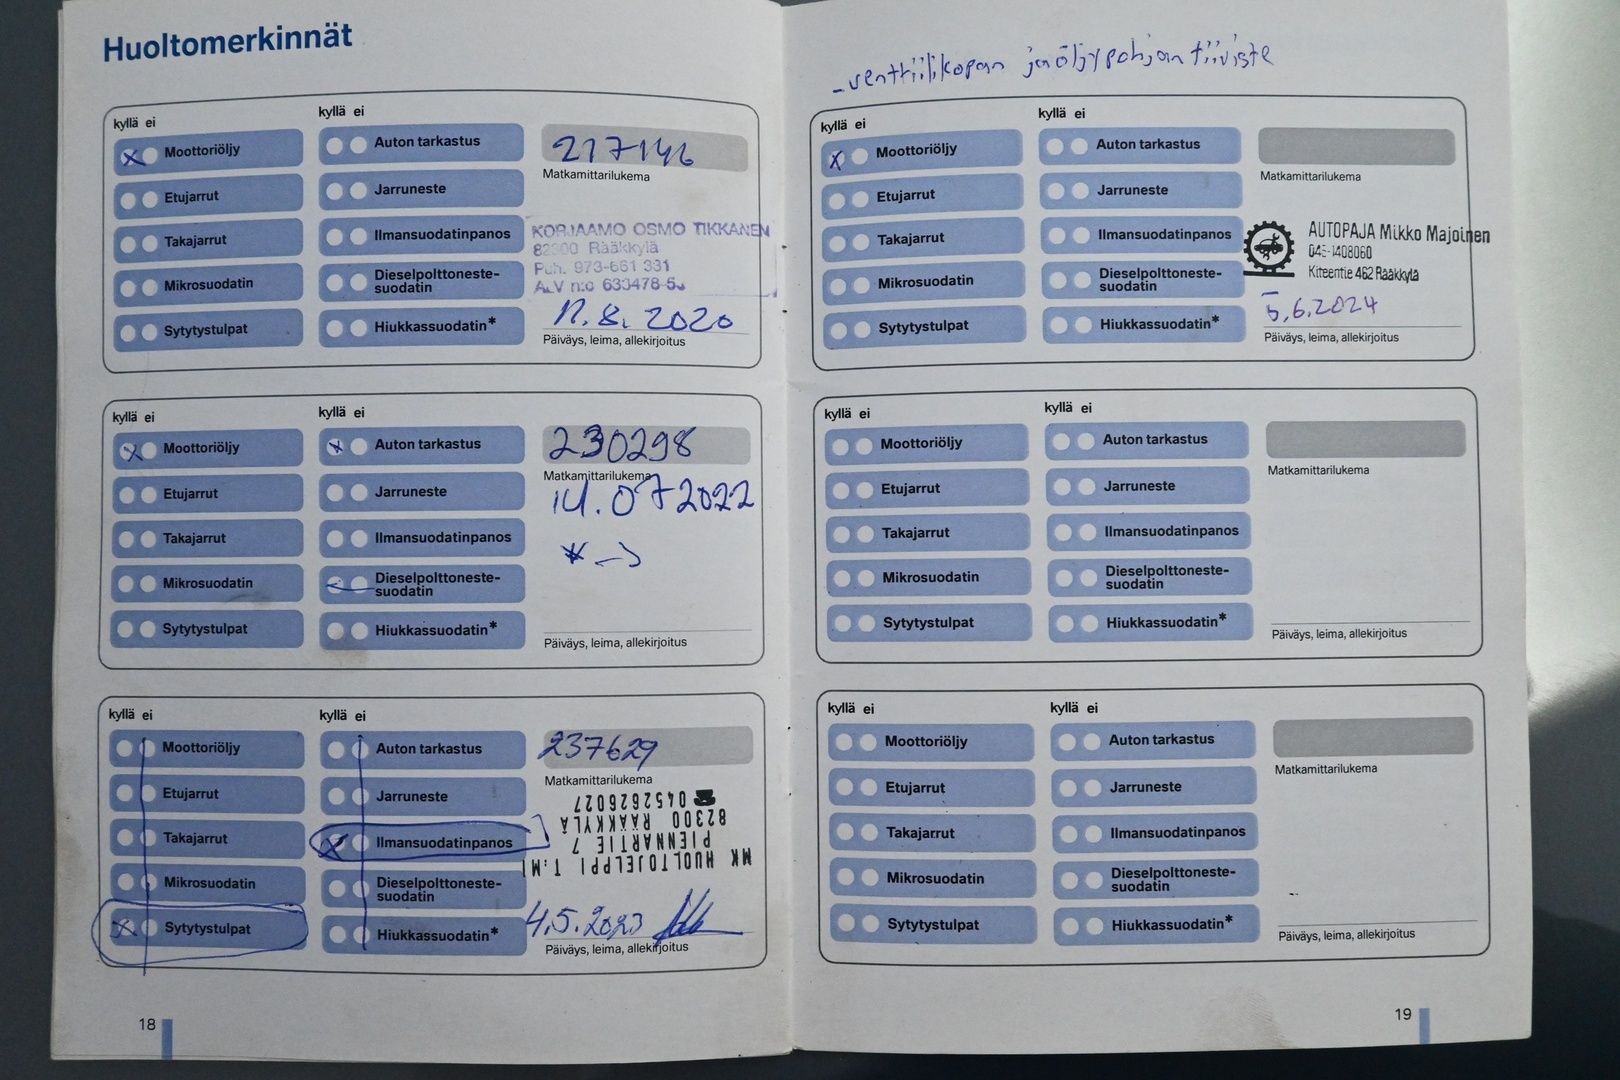 Huoltomerkinnät
kyllä ei
Moottoriöljy
Etujarrut
Takajarrut
Mikrosuodatin
Sytytystulpat
kyllä ei
Auton tarkastus
Jarruneste
Ilmansuodatinpanos
Dieselpolttoneste-
suodatin
Hiukkassuodatin*
217146
Matkamittarilukema
KORJAAMO OSMO TIKKANEN
82300 Rääkkylä
Puh. 973-661 331
ALV n:o 633478-5
8. 2020
Päiväys, leima, allekirjoitus
kyllä ei
Moottoriöljy
Etujarrut
Takajarrut
Mikrosuodatin
Sytytystulpat
kyllä ei
Auton tarkastus
Jarruneste
Ilmansuodatinpanos
Dieselpolttoneste-
suodatin
Hiukkassuodatin*
230298
Matkamittarilukema
14.07 2022
* ->
Päiväys, leima, allekirjoitus
kyllä ei
Moottoriöljy
Etujarrut
Takajarrut
Mikrosuodatin
Sytytystulpat
kyllä ei
Auton tarkastus
Jarruneste
Ilmansuodatinpanos
Dieselpolttoneste-
suodatin
Hiukkassuodatin*
237629
Matkamittarilukema
MK HUOLTOJELPPI T.MI
PIENNARTIE 7
82300 RÄÄKKYLÄ
☎ 0452626027
4.5.2023
Päiväys, leima, allekirjoitus
18
- venttiilikopan ja öljypohjan tiiviste
kyllä ei
Moottoriöljy
Etujarrut
Takajarrut
Mikrosuodatin
Sytytystulpat
kyllä ei
Auton tarkastus
Jarruneste
Ilmansuodatinpanos
Dieselpolttoneste-
suodatin
Hiukkassuodatin*
Matkamittarilukema
AUTOPAJA Mikko Majoinen
045-1408060
Kiteentie 462 Rääkkylä
5.6.2024
Päiväys, leima, allekirjoitus
kyllä ei
Moottoriöljy
Etujarrut
Takajarrut
Mikrosuodatin
Sytytystulpat
kyllä ei
Auton tarkastus
Jarruneste
Ilmansuodatinpanos
Dieselpolttoneste-
suodatin
Hiukkassuodatin*
Matkamittarilukema
Päiväys, leima, allekirjoitus
kyllä ei
Moottoriöljy
Etujarrut
Takajarrut
Mikrosuodatin
Sytytystulpat
kyllä ei
Auton tarkastus
Jarruneste
Ilmansuodatinpanos
Dieselpolttoneste-
suodatin
Hiukkassuodatin*
Matkamittarilukema
Päiväys, leima, allekirjoitus
19